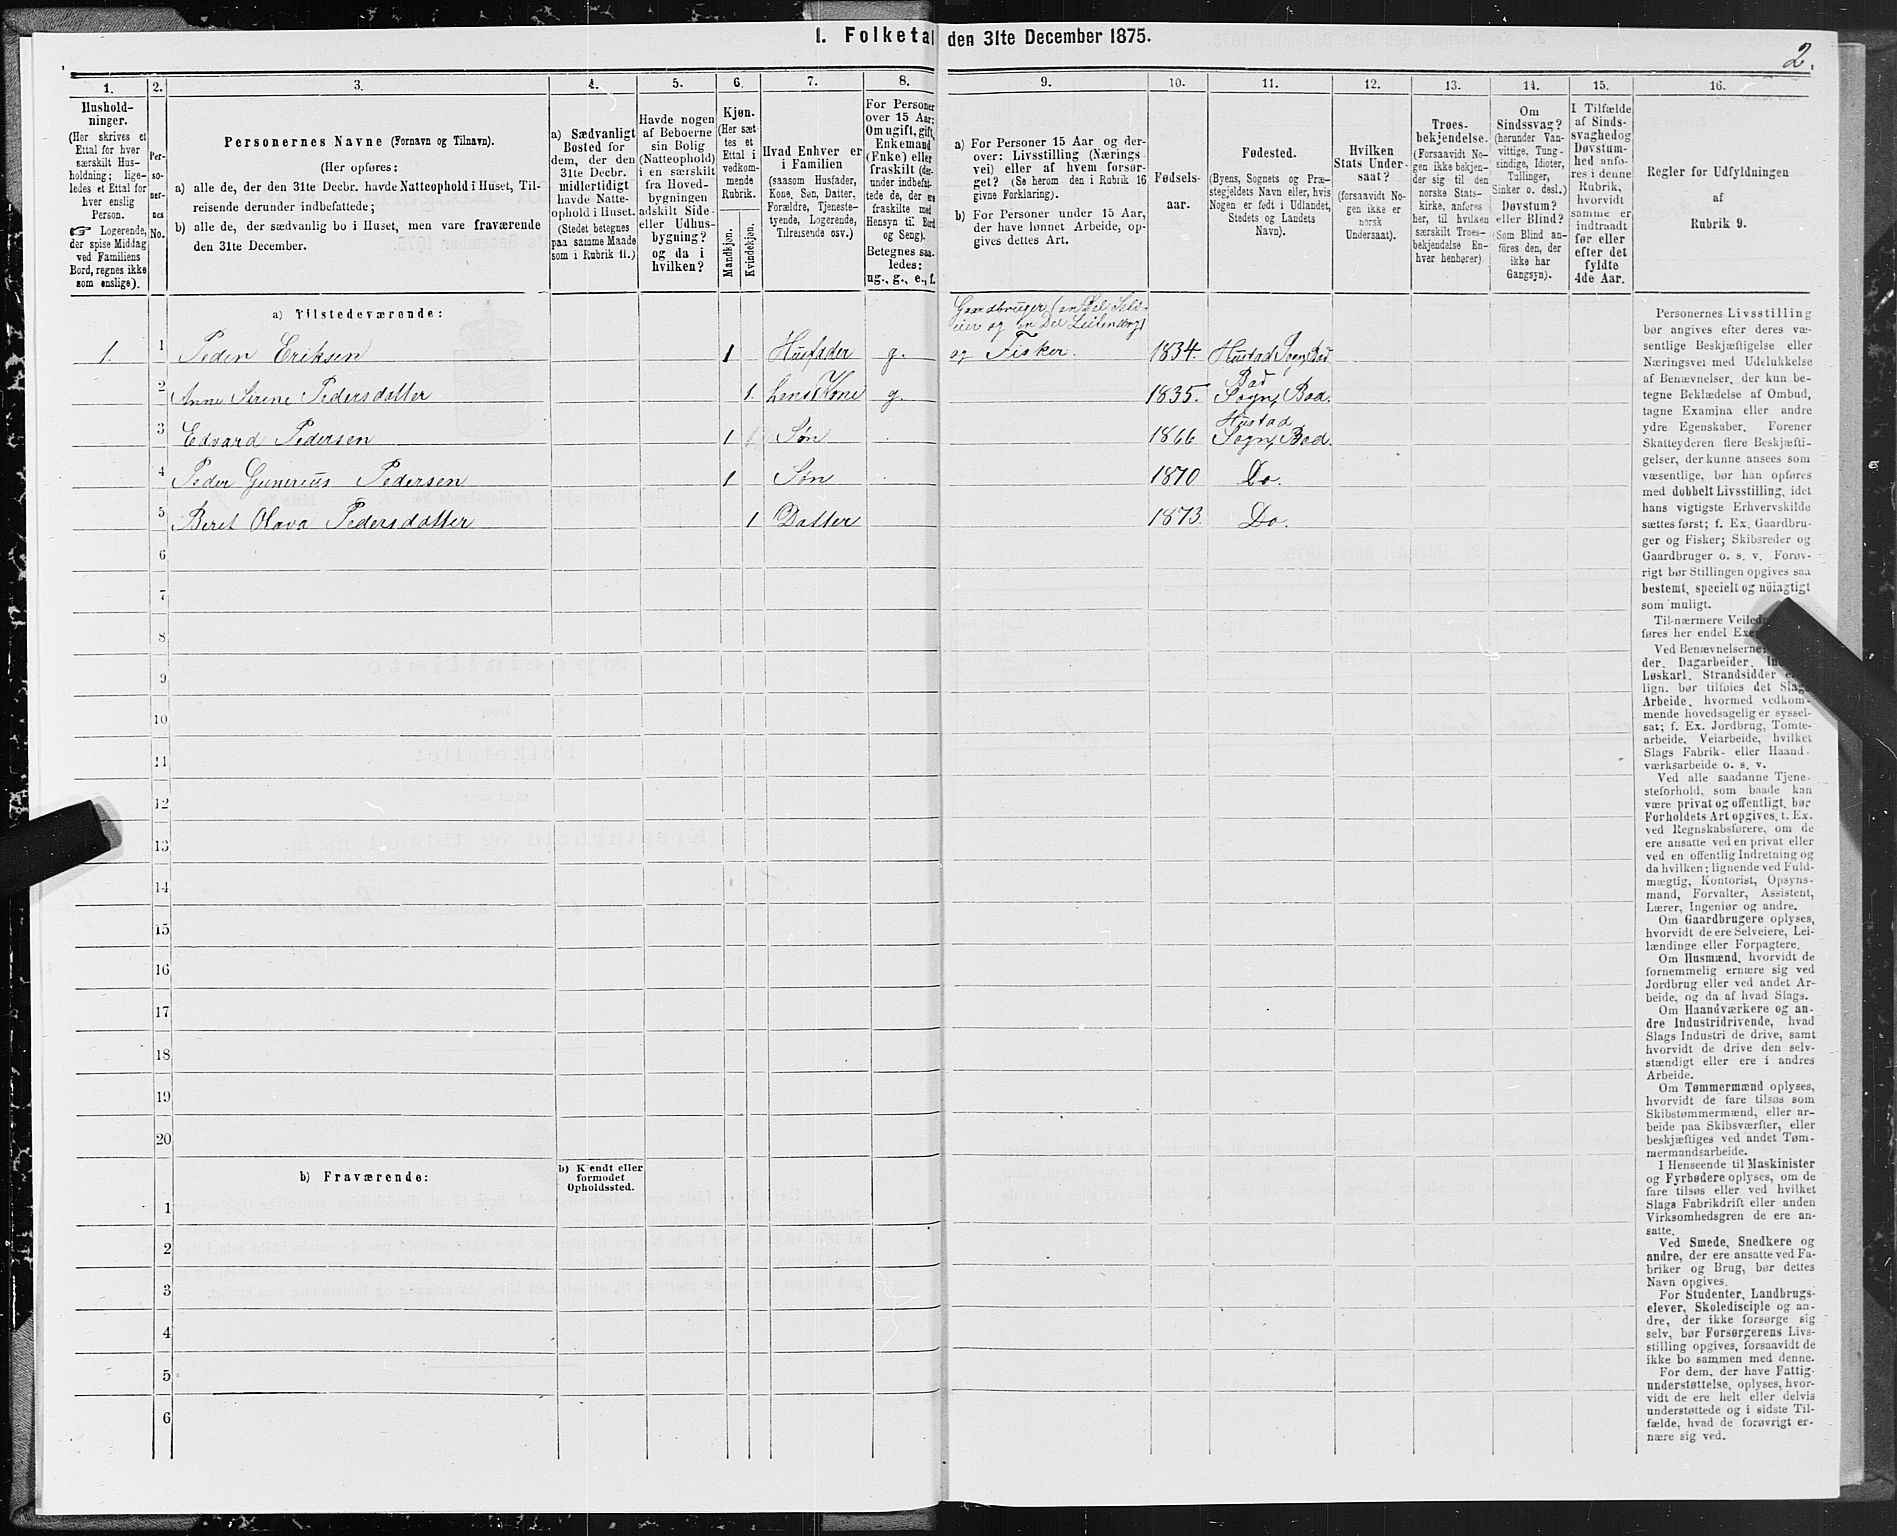 1. Folketal den 31te December 1875.
2.
1.
Hushold-
ninger.
(Her skrives et
Ettal for hver
særskilt Hus-
holdning; lige-
ledes et Ettal for
hver enslig
Person.
☞ Logerende,
der spise Middag
ved Familiens
Bord, regnes ikke
som enslige).
2.
Per-
so-
ner-
nes
No.
3.
Personernes Navne (Fornavn og Tilnavn).
(Her opføres:
a) alle de, der den 31te Decbr. havde Natteophold i Huset, Til-
reisende derunder indbefattede;
b) alle de, der sædvanlig bo i Huset, men vare fraværende
den 31te December.
4.
a) Sædvanligt
Bosted for
dem, der den
31te Decbr.
midlertidigt
havde Natte-
ophold i Huset.
(Stedet betegnes
paa samme Maade
som i Rubrik 11.)
5.
Havde nogen
af Beboerne
sin Bolig
(Natteophold)
i en særskilt
fra Hoved-
bygningen
adskilt Side-
eller Udhus-
bygning?
og da i
hvilken?
6.
Kjøn.
(Her sæt-
tes et
Ettal i
vedkom-
mende
Rubrik.
Mandkjøn.
Kvindekjøn.
7.
Hvad Enhver er
i Familien
(saasom Husfader,
Kone, Søn, Datter,
Forældre, Tjeneste-
tyende, Logerende,
Tilreisende osv.)
8.
For Personer
over 15 Aar:
Om ugift, gift,
Enkemand
(Enke) eller
fraskilt (der-
under indbefat-
tede de, der ere
fraskilte med
Hensyn til Bord
og Seng).
Betegnes saa-
ledes:
ug., g., e., f.
9.
a) For Personer 15 Aar og der-
over: Livsstilling (Nærings-
vei) eller af hvem forsør-
get? (Se herom den i Rubrik 16
givne Forklaring).
b) For Personer under 15 Aar,
der have lønnet Arbeide, op-
gives dettes Art.
10.
Fødsels-
aar.
11.
Fødested.
(Byens, Sognets og Præ-
stegjeldets Navn eller, hvis
Nogen er født i Udlandet,
Stedets og Landets
Navn).
12.
Hvilken
Stats Under-
saat?
(forsaavidt No-
gen ikke er
norsk
Undersaat).
13.
Troes-
bekjendelse.
(Forsaavidt No-
gen ikke bekjen-
der sig til den
norske Stats-
kirke, anføres
her, til hvilken
særskilt Troes-
bekjendelse En-
hver henhører)
14.
Om
Sindssvag?
(herunder Van-
vittige, Tung-
sindige, Idioter,
Tullinger,
Sinker o. desl.)
Døvstum?
eller Blind?
(Som Blind an-
føres den, der
ikke har
Gangsyn).
15.
I Tilfælde
af Sinds-
svaghedog
Døvstum-
hed anfø-
res i denne
Rubrik,
hvorvidt
samme er
indtraadt
før eller
efter det
fyldte
4de Aar.
16.
Regler for Udfyldningen
af
Rubrik 9.
a) Tilstedeværende:
Gaardbruger (en Del Selv-
eier og en Del Leilending)
1. 1 Peder Eriksen 1 Husfader g. og Fisker. 1834. Hustad Sogn, Bod
Bod
2 Anne Serine Pedersdatter 1. hans Kone g. 1835. Sogn, Bod.
Hustad
3 Edvard Pedersen 1 Søn 1866 Sogn, Bod.
4 Peder Gunerius Pedersen 1 Søn 1870 Do.
5 Beret Olava Pedersdatter 1 Datter 1873. Do.
6
7
8
9
10
11
12
13
14
15
16
17
18
19
20
b) Fraværende:
b) Kendt eller
formodet
Opholdssted.
1
2
3
4
5
6
Personernes Livsstilling
bør angives efter deres væ-
sentlige Beskjæftigelse eller
Næringsvei med Udelukkelse
af Benævnelser, der kun be-
tegne Beklædelse af Ombud,
tagne Examina eller andre
ydre Egenskaber. Forener
Skatteyderen flere Beskjæfti-
gelser, der kunne ansees som
væsentlige, bør han opføres
med dobbelt Livsstilling, idet
hans vigtigste Erhvervskilde
sættes først; f. Ex. Gaardbru-
ger og Fisker; Skibsreder og
Gaardbruger o. s. v. Forøv-
rigt bør Stillingen opgives saa
bestemt, specielt og nöiagtigt
som muligt.
Til nærmere Veiledn
føres her endel Exe
Ved Benævnelserne:
der, Dagarbeider, In
Løskarl, Strandsidder
lign. bør tilføies det Slags
Arbeide, hvormed vedkom-
mende hovedsagelig er syssel-
sat; f. Ex. Jordbrug, Tomte-
arbeide, Veiarbeide, hvilket
Slags Fabrik- eller Haand-
værksarbeide o. s. v.
Ved alle saadanne Tjene-
steforhold, som baade kan
være privat og offentligt, bør
Forholdets Art opgives, f. Ex.
ved Regnskabsførere, om de
ere ansatte ved en privat eller
ved en offentlig Indretning og
da hvilken; lignende ved Fuld-
mægtig, Kontorist, Opsyns-
mand, Forvalter, Assistent,
Lærer, Ingeniør og andre.
Om Gaardbrugere oplyses,
hvorvidt de ere Selveiere, Lei-
lændinge eller Forpagtere.
Om Husmænd, hvorvidt de
fornemmelig ernære sig ved
Jordbrug eller ved andet Ar-
beide, og da af hvad Slags.
Om Haandværkere og an-
dre Industridrivende, hvad
Slags Industri de drive, samt
hvorvidt de drive den selv-
stændigt eller ere i andres
Arbeide.
Om Tømmermænd oplyses,
hvorvidt de fare tilsøs som
Skibstømmermænd, eller ar-
beide paa Skibsværfter, eller
beskjæftiges ved andet Tøm-
mermandsarbeide.
I Henseende til Maskinister
og Fyrbødere oplyses, om de
fare tilsøs eller ved hvilket
Slags Fabrikdrift eller anden
Virksomhedsgren de ere an-
satte.
Ved Smede, Snedkere og
andre, der ere ansatte ved Fa-
briker og Brug, bør dettes
Navn opgives.
For Studenter, Landbrugs-
elever, Skoledisciple og an-
dre, der ikke forsørge sig
selv, bør Forsørgerens Livs-
stilling opgives, forsaavidt de
ikke bo sammen med denne.
For dem, der have Fattig-
understøttelse, oplyses, hvor-
vidt de ere helt eller delvis
understøttede og i sidste Til-
fælde, hvad de forøvrigt er-
nære sig ved.